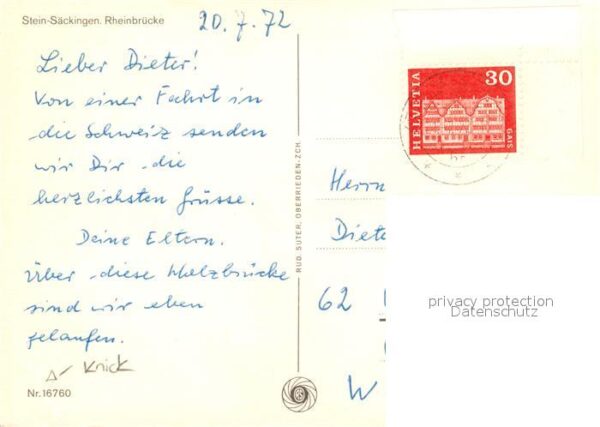 Stein-Säckingen. Rheinbrücke
20.7.72
Lieber Dieter!
Von einer Fahrt in
die Schweiz senden
wir Dir die
herzlichsten Grüsse.
Deine Eltern.
Über diese Holzbrücke
sind wir eben
gelaufen.
Knick
Nr. 16760
RUD. SUTER, OBERRIEDEN-ZCH.
HELVETIA
30
GAIS
Herrn
Diete
62
W
privacy protection
Datenschutz